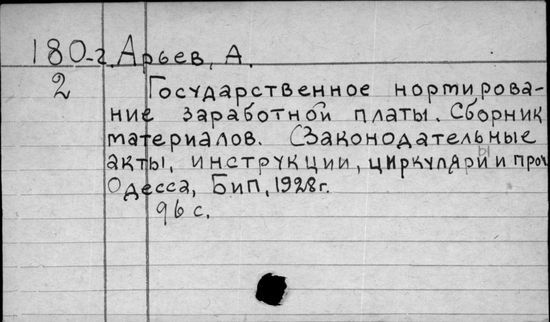 180-г. Арьев, А.
2 Государственное нормирова-
ние заработной платы. Сборник
материалов. (Законодательные
акты, инструкции, циркуляры и проч
Одесса, БиП, 1928г.
96 с.